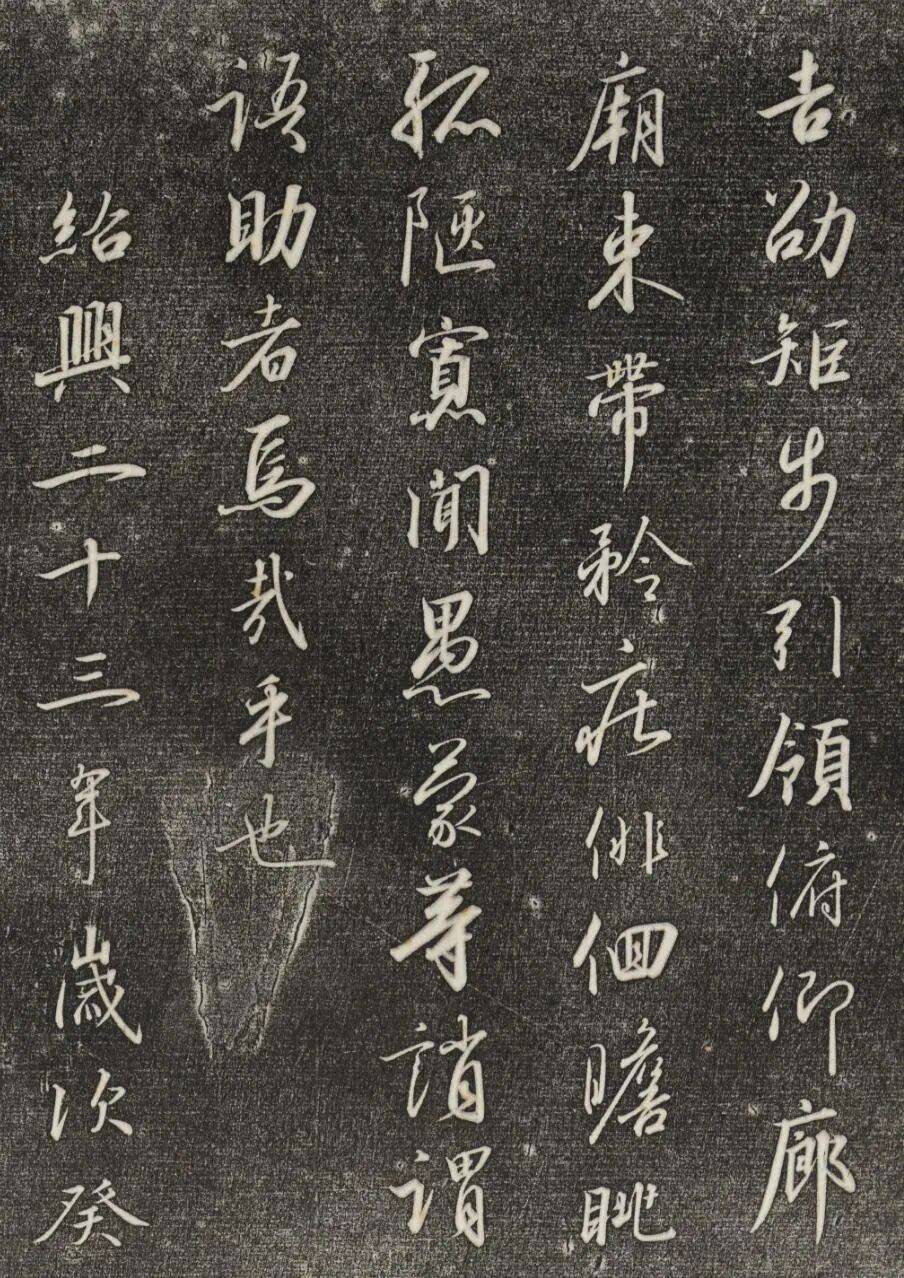 吉劭矩步引領俯仰廊
廟束帶矜莊俳佪瞻眺
孤陋寡聞愚蒙等誚謂
語助者焉哉乎也
紹興二十三年歲次癸